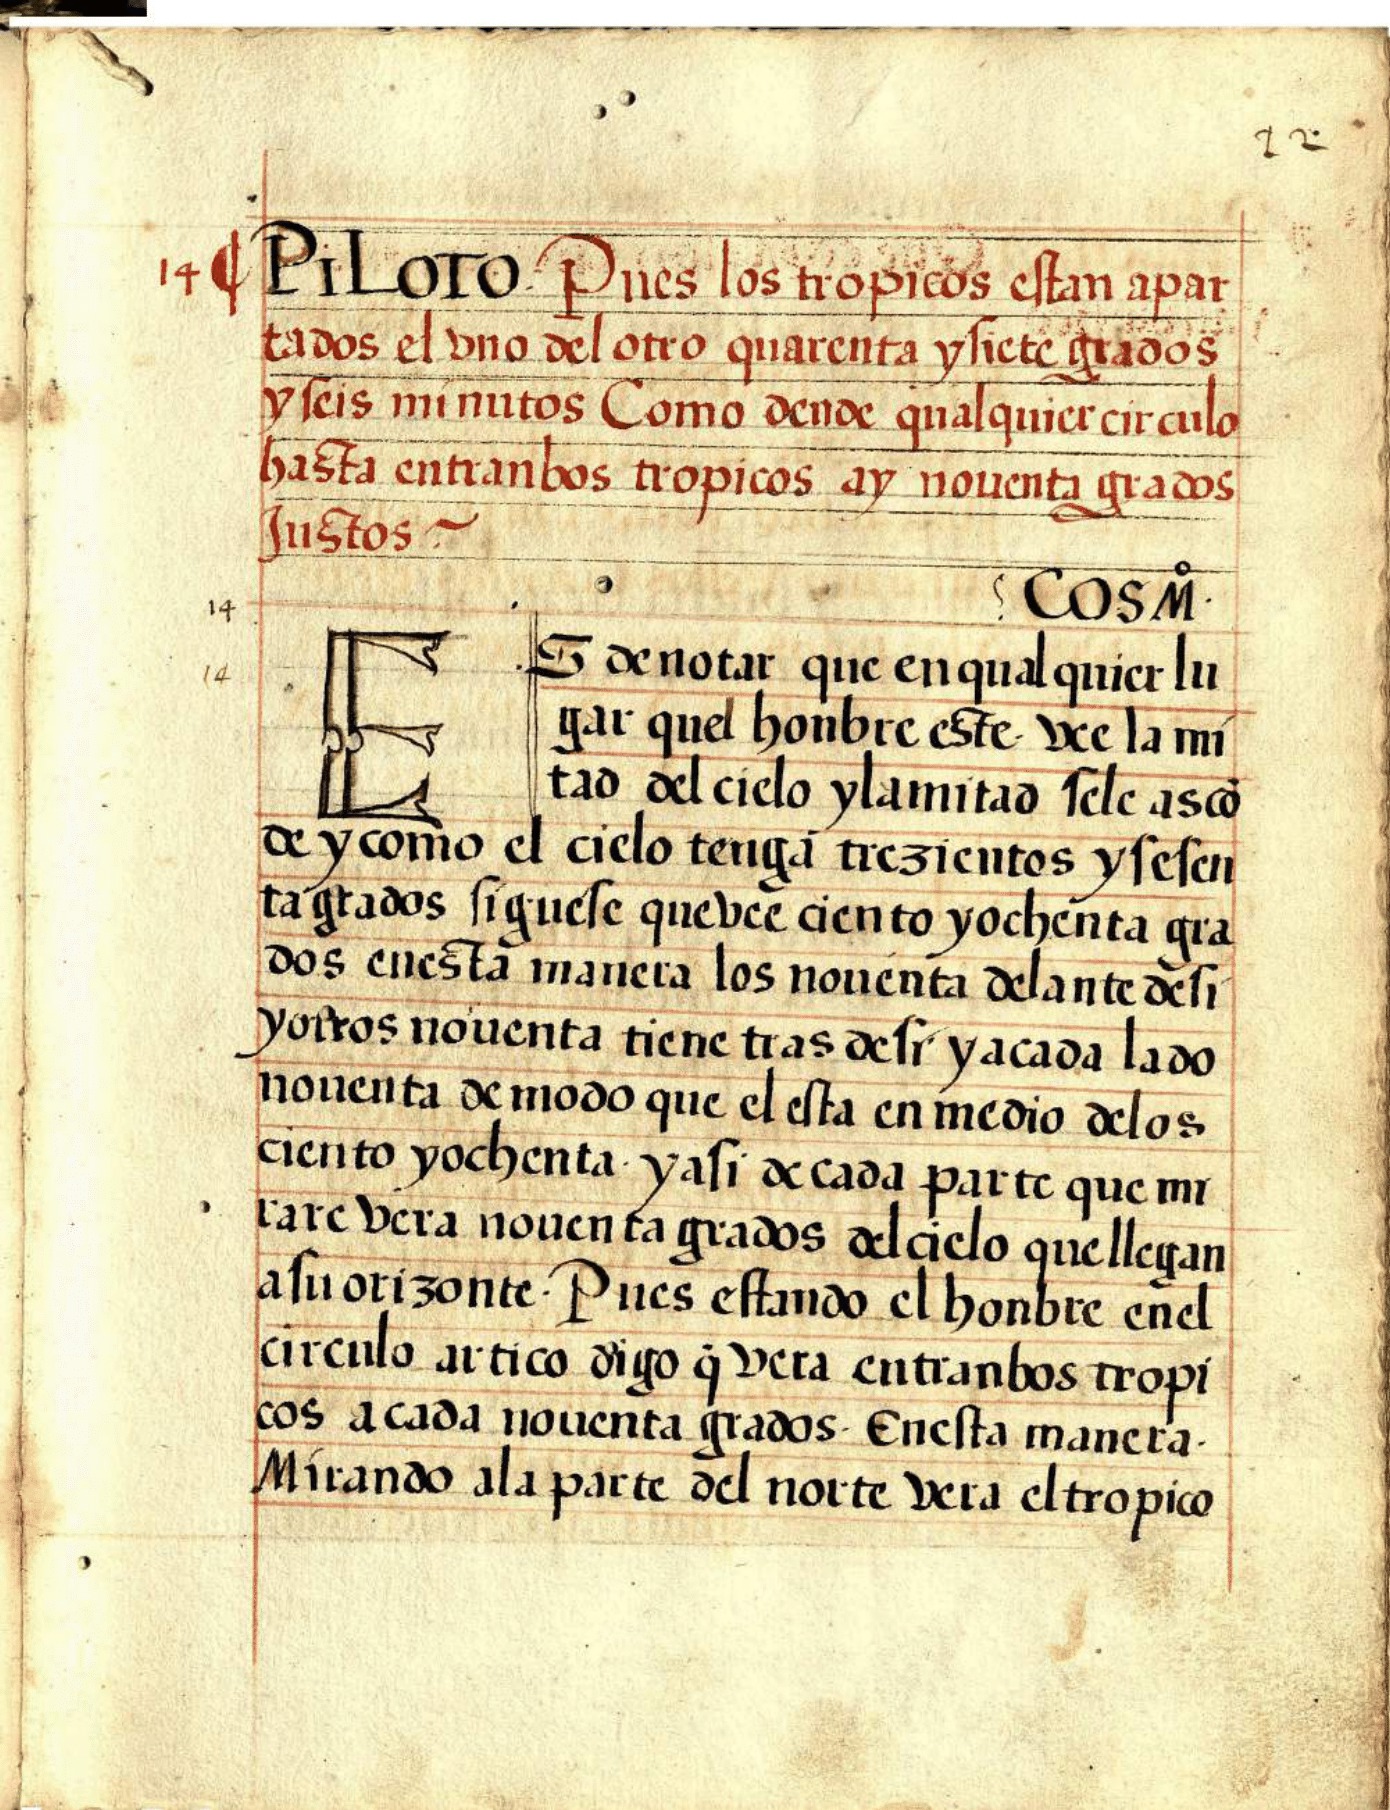 22
14 ¶ PiLOTO. Pues los tropicos estan apar
tados el vno del otro quarenta ysiete grados
yseis minutos Como dende qualquier circulo
hasta entranbos tropicos ay nouenta grados
Justos
COSMº.
14
14
ES de notar que en qualquier lu
gar quel honbre este. vee la mi
tad del cielo ylamitad sele ascō
de y como el cielo tenga trezientos ysesen
ta grados siguese que vee ciento yochenta gra
dos enesta manera los nouenta delante desi
yotros nouenta tiene tras desi yacada lado
nouenta de modo que el esta en medio delos
ciento yochenta. yasi de cada parte que mi
rare vera nouenta grados del cielo que llegan
asu orizonte. Pues estando el honbre enel
circulo artico digo q̃ vera entranbos tropi
cos acada nouenta grados. Enesta manera.
Mirando ala parte del norte vera el tropico